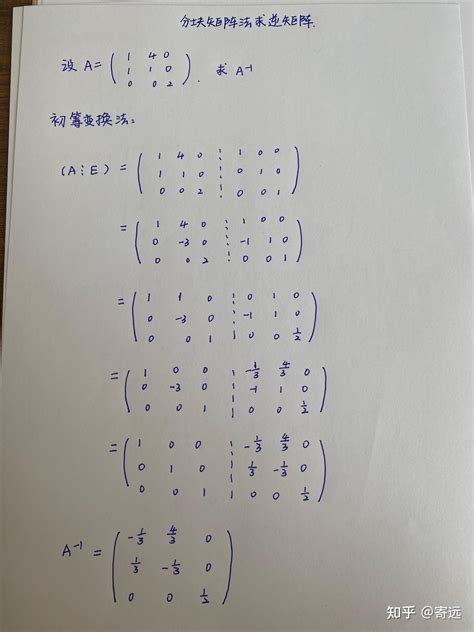 分块矩阵法求逆矩阵.
设 A= ( 1 4 0
1 1 0
0 0 2 ). 求 A⁻¹
初等变换法:
(A⋮E) = ( 1 4 0 ⋮ 1 0 0
1 1 0 ⋮ 0 1 0
0 0 2 ⋮ 0 0 1 )
= ( 1 4 0 ⋮ 1 0 0
0 -3 0 ⋮ -1 1 0
0 0 2 ⋮ 0 0 1 )
= ( 1 1 0 ⋮ 0 1 0
0 -3 0 ⋮ -1 1 0
0 0 1 ⋮ 0 0 1/2 )
= ( 1 0 0 ⋮ -1/3 4/3 0
0 -3 0 ⋮ -1 1 0
0 0 1 ⋮ 0 0 1/2 )
= ( 1 0 0 ⋮ -1/3 4/3 0
0 1 0 ⋮ 1/3 -1/3 0
0 0 1 ⋮ 0 0 1/2 )
A⁻¹ = ( -1/3 4/3 0
1/3 -1/3 0
0 0 1/2 )
知乎 @寄远